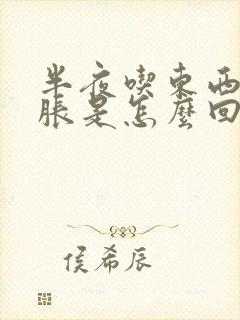 半夜喫東西
脹是怎麼回
侯希辰